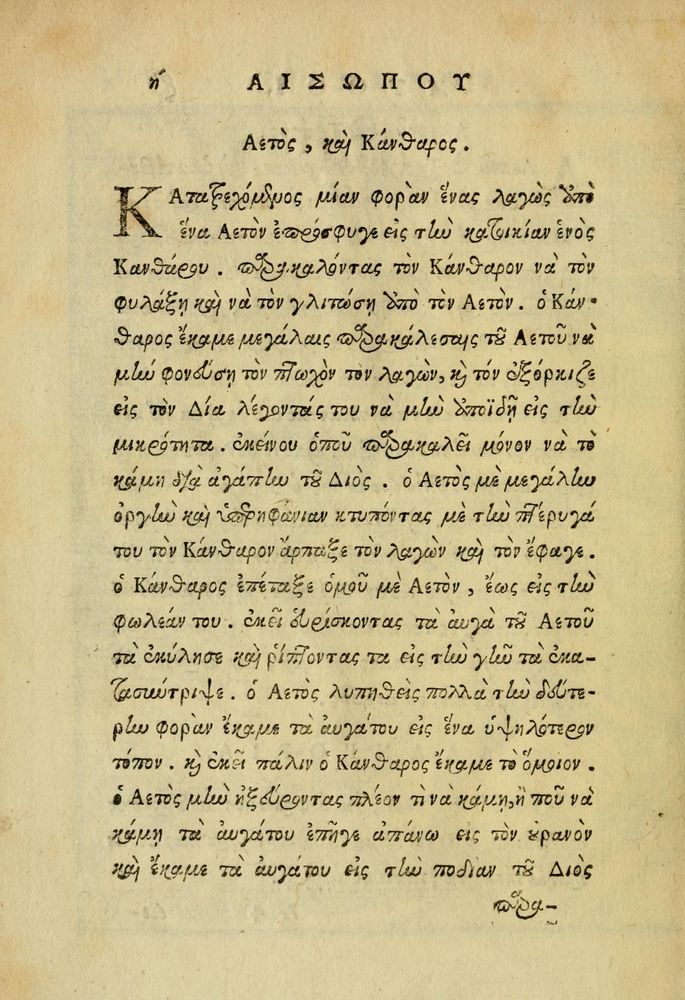 η΄ ΑΙΣΩΠΟΥ
Αετὸς, καὶ Κάνθαρος.
ΚΑτατρεχόμενος μίαν φορὰν ἕνας λαγὼς ὑπὸ
ἕνα Αετὸν ἐπρόσφυγε εἰς τὴν κατοικίαν ἑνὸς
Κανθάρου. παρακαλόντας τὸν Κάνθαρον νὰ τὸν
φυλάξῃ καὶ νὰ τὸν γλιτώσῃ ἀπὸ τὸν Αετὸν. ὁ Κάν-
θαρος ἔκαμε μεγάλαις παρακάλεσαις τοῦ Αετοῦ νὰ
μὴν φονεύσῃ τὸν πτωχὸν τὸν λαγὼν, καὶ τόν ἐξόρκιζε
εἰς τὸν Δία λέγοντάς του νὰ μὴν ὑποϊδῇ εἰς τὴν
μικρότητα. ἐκείνου ὁποῦ παρακαλεῖ μόνον νὰ τὸ
κάμῃ διὰ ἀγάπην τοῦ Διὸς. ὁ Αετὸς μὲ μεγάλην
ὀργὴν καὶ ὑπερηφάνιαν κτυπόντας μὲ τὴν πτέρυγά
του τὸν Κάνθαρον ἅρπαξε τὸν λαγὼν καὶ τὸν ἔφαγε.
ὁ Κάνθαρος ἐπέταξε ὁμοῦ μὲ Αετὸν, ἕως εἰς τὴν
φωλεάν του. ἐκεῖ εὑρίσκοντας τὰ αυγὰ τοῦ Αετοῦ
τὰ ἐκύλησε καὶ ῥίπτοντας τα εἰς τὴν γῆν τὰ ἐκα-
τασυνέτριψε. ὁ Αετὸς λυπηθεὶς πολλὰ τὴν δεύτε-
ρην φορὰν ἔκαμε τὰ ἀυγάτου εἰς ἕνα ὑψηλότερον
τόπον. καὶ ἐκεῖ πάλιν ὁ Κάνθαρος ἔκαμε τὸ ὅμοιον.
ὁ Αετὸς μὴν ἠξεύροντας πλέον τὶ νὰ κάμῃ, ἢ ποῦ νὰ
κάμῃ τὰ ἀυγάτου ἐπῆγε ἀπάνω εἰς τὸν οὐρανὸν
καὶ ἔκαμε τὰ ἀυγάτου εἰς τὴν ποδίαν τοῦ Διὸς
παρα-